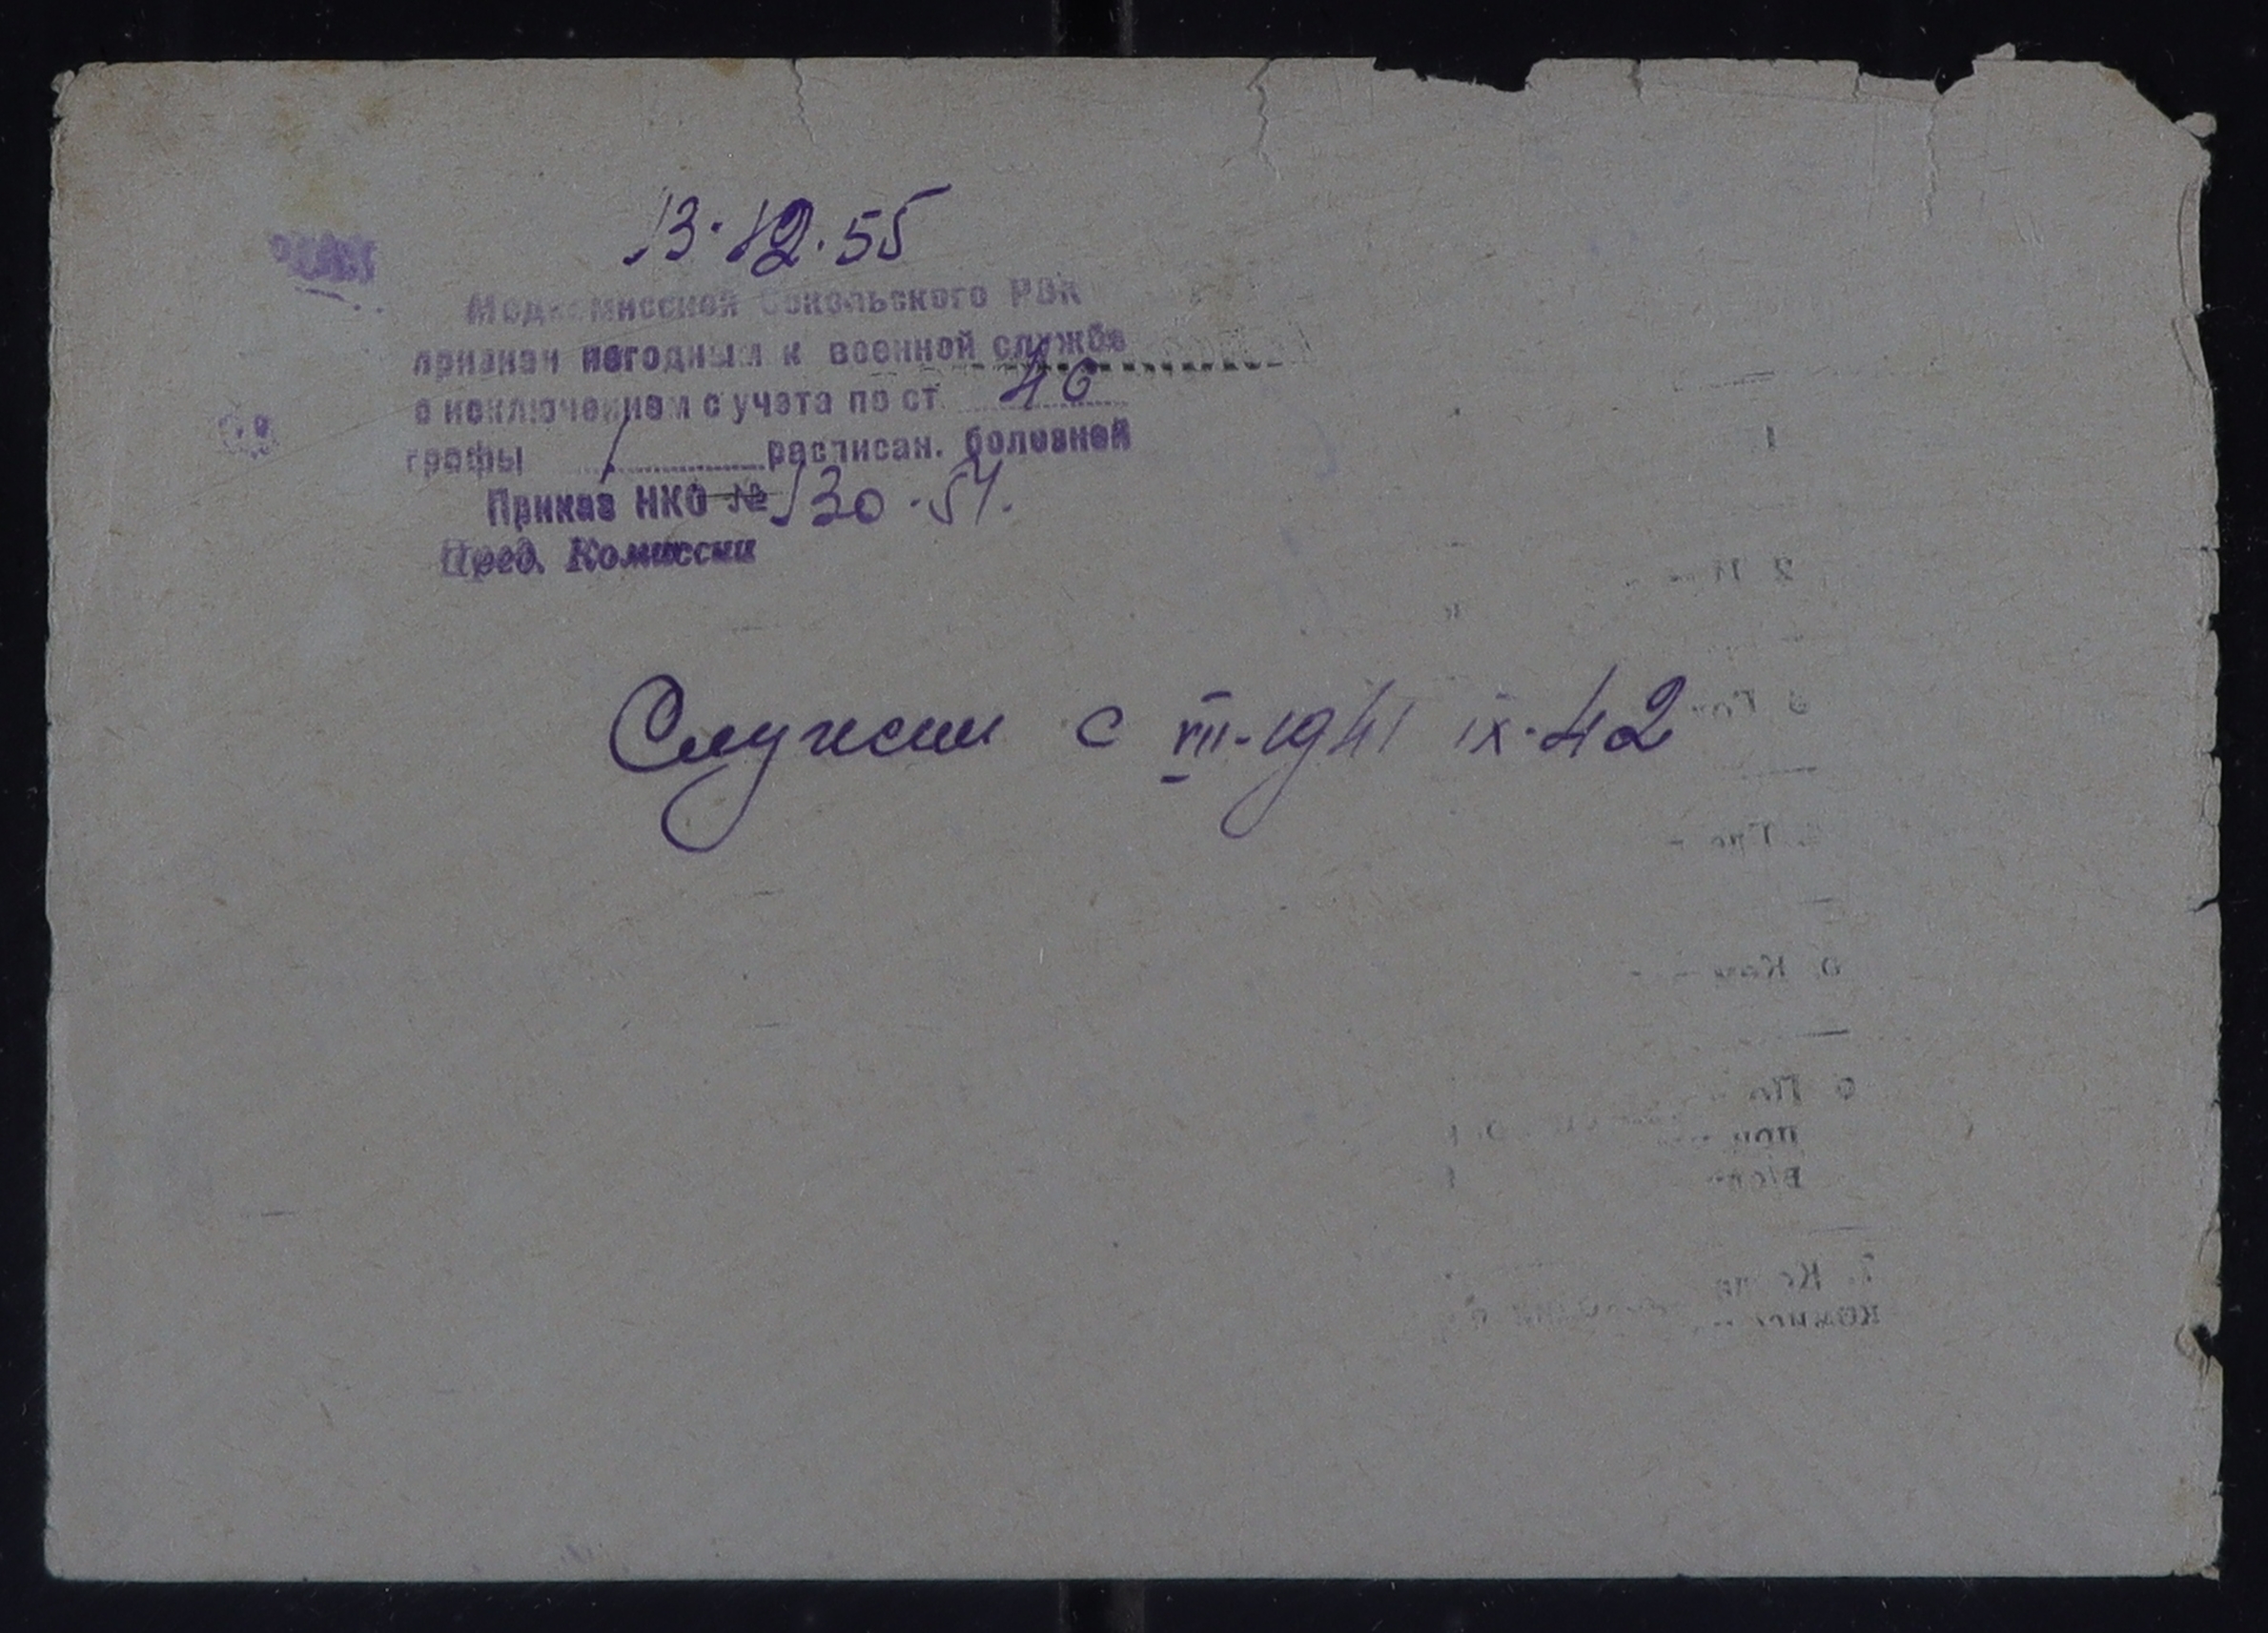 13.12.55
Медкомиссией Сокольского РВК
признан негодным к военной службе
с исключением с учета по ст. 46
графы 1 расписан. болезней
Приказ НКО № 130.51.
Пред. Комиссии
Служил с VII-1941 IX.42